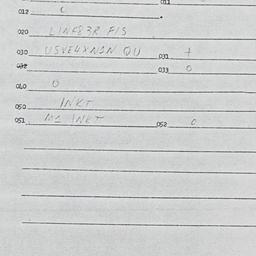 011
012 C
020 LINF83R FIS
030 USVE4XN1N QU 031 7
032 033 0
040 0
050 INKT
051 M1 INKT 052 0